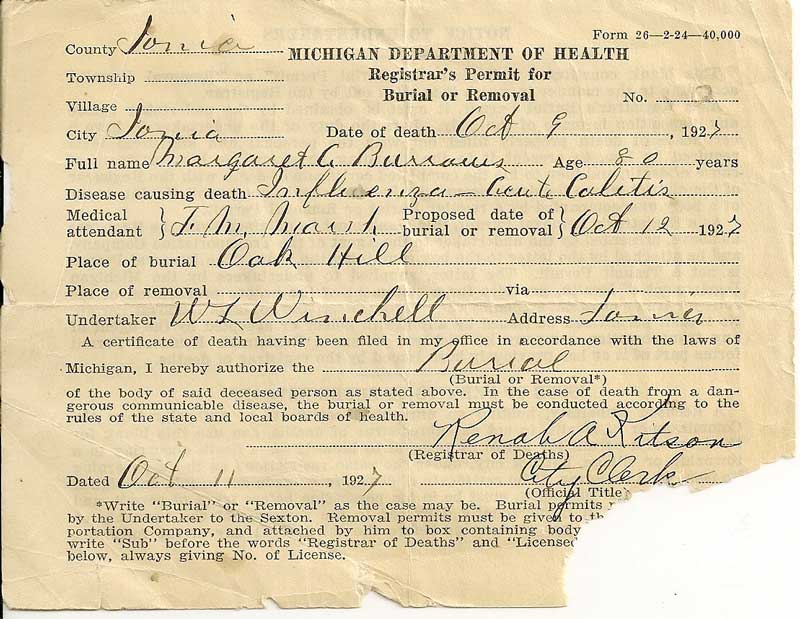 Form 26—2-24—40,000
County Ionia
MICHIGAN DEPARTMENT OF HEALTH
Township
Registrar's Permit for
Burial or Removal
Village
No.
City Ionia Date of death Oct 9, 1927
Full name Margaret A Burrows Age 80 years
Disease causing death Influenza – Acute Colitis
Medical attendant } F. M. Marsh Proposed date of burial or removal } Oct 12 1927
Place of burial Oak Hill
Place of removal via
Undertaker W L Winchell Address Ionia
A certificate of death having been filed in my office in accordance with the laws of
Michigan, I hereby authorize the Burial
(Burial or Removal*)
of the body of said deceased person as stated above. In the case of death from a dan-
gerous communicable disease, the burial or removal must be conducted according to the
rules of the state and local boards of health.
Renah A Kitson
(Registrar of Deaths)
Dated Oct 11, 1927 City Clerk
(Official Title)
*Write "Burial" or "Removal" as the case may be. Burial permits
by the Undertaker to the Sexton. Removal permits must be given to
portation Company, and attached by him to box containing body
write "Sub" before the words "Registrar of Deaths" and "Licensed
below, always giving No. of License.